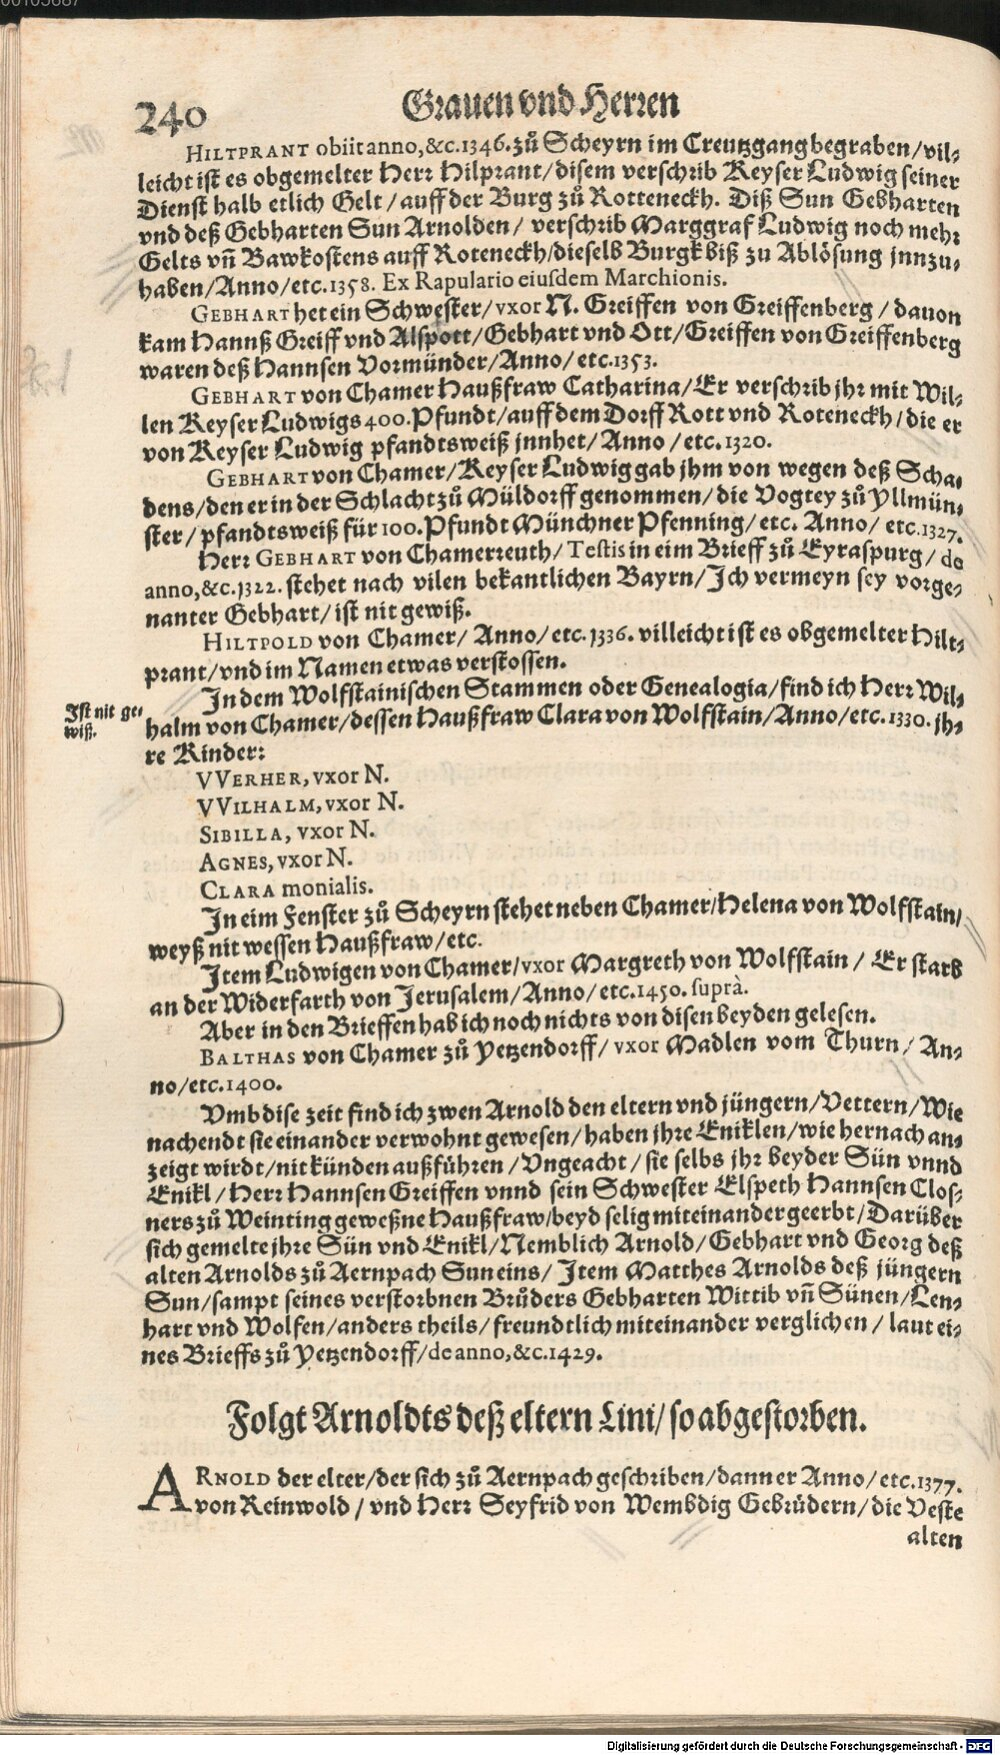 240
Grauen vnd Herren
HILTPRANT obiit anno, &c. 1346. zů Scheyrn im Creutzgang begraben/vil-
leicht ist es obgemelter Herr Hilprant/disem verschrib Keyser Ludwig seiner
Dienst halb etlich Gelt/auff der Burg zů Rotteneckh. Diß Sun Gebharten
vnd deß Gebharten Sun Arnolden/ verschrib Marggraf Ludwig noch mehr
Gelts vñ Bawkostens auff Roteneckh/dieselb Burgk biß zu Ablösung jnnzu-
haben/Anno/etc. 1358. Ex Rapulario eiusdem Marchionis.
GEBHART het ein Schwester/vxor N. Greiffen von Greiffenberg/ dauon
kam Hannß Greiff vnd Alspott/Gebhart vnd Ott/Greiffen von Greiffenberg
waren deß Hannsen Vormünder/Anno/etc. 1353.
GEBHART von Chamer Haußfraw Catharina/Er verschrib jhr mit Wil-
len Keyser Ludwigs 400. Pfundt/auff dem Dorff Rott vnd Roteneckh/die er
von Keyser Ludwig pfandtsweiß jnnhet/Anno/etc. 1320.
GEBHART von Chamer/Keyser Ludwig gab jhm von wegen deß Scha-
dens/den er in der Schlacht zů Müldorff genommen/die Vogtey zů Yllmün-
ster/pfandtsweiß für 100. Pfundt Münchner Pfenning/etc. Anno/etc. 1327.
Herr GEBHART von Chamerreuth/Testis in eim Brieff zů Eyraspurg/de
anno, &c. 1322. stehet nach vilen bekantlichen Bayrn/Jch vermeyn sey vorge-
nanter Gebhart/ist nit gewiß.
HILTPOLD von Chamer/ Anno/etc. 1336. villeicht ist es obgemelter Hilt-
prant/vnd im Namen etwas verstossen.
Jn dem Wolfstainischen Stammen oder Genealogia/find ich Herr Wil-
Jst nit ge-
wiß.
halm von Chamer/dessen Haußfraw Clara von Wolfstain/Anno/etc. 1330. jh-
re Kinder:
VVERHER, vxor N.
VVILHALM, vxor N.
SIBILLA, vxor N.
AGNES, vxor N.
CLARA monialis.
Jn eim Fenster zů Scheyrn stehet neben Chamer/Helena von Wolfstain/
weyß nit wessen Haußfraw/etc.
Jtem Ludwigen von Chamer/vxor Margreth von Wolfstain/ Er starb
an der Widerfarth von Jerusalem/Anno/etc. 1450. suprà.
Aber in den Brieffen hab ich noch nichts von disen beyden gelesen.
BALTHAS von Chamer zů Yetzendorff/ vxor Madlen vom Thurn/ An-
no/etc. 1400.
Vmb dise zeit find ich zwen Arnold den eltern vnd jüngern/Vettern/Wie
nachendt sie einander verwohnt gewesen/haben jhre Eniklen/wie hernach an-
zeigt wirdt/nit künden außführen/Vngeacht/sie selbs jhr beyder Sün vnnd
Enikl/Herr Hannsen Greiffen vnnd sein Schwester Elspeth Hannsen Clos-
ners zů Weinting geweßne Haußfraw/beyd selig miteinander geerbt/Darüber
sich gemelte jhre Sün vnd Enikl/Nemblich Arnold/Gebhart vnd Georg deß
alten Arnolds zů Aernpach Sun eins/ Jtem Matthes Arnolds deß jüngern
Sun/sampt seines verstorbnen Brůders Gebharten Wittib vñ Sünen/Len-
hart vnd Wolfen/anders theils/freundtlich miteinander verglichen/laut ei-
nes Brieffs zů Yetzendorff/de anno, &c. 1429.
Folgt Arnoldts deß eltern Lini/so abgestorben.
ARNOLD der elter/der sich zů Aernpach geschriben/dann er Anno/etc. 1377.
von Reinwold/ vnd Herr Seyfrid von Wembdig Gebrüdern/die Veste
alten
Digitalisierung gefördert durch die Deutsche Forschungsgemeinschaft - DFG